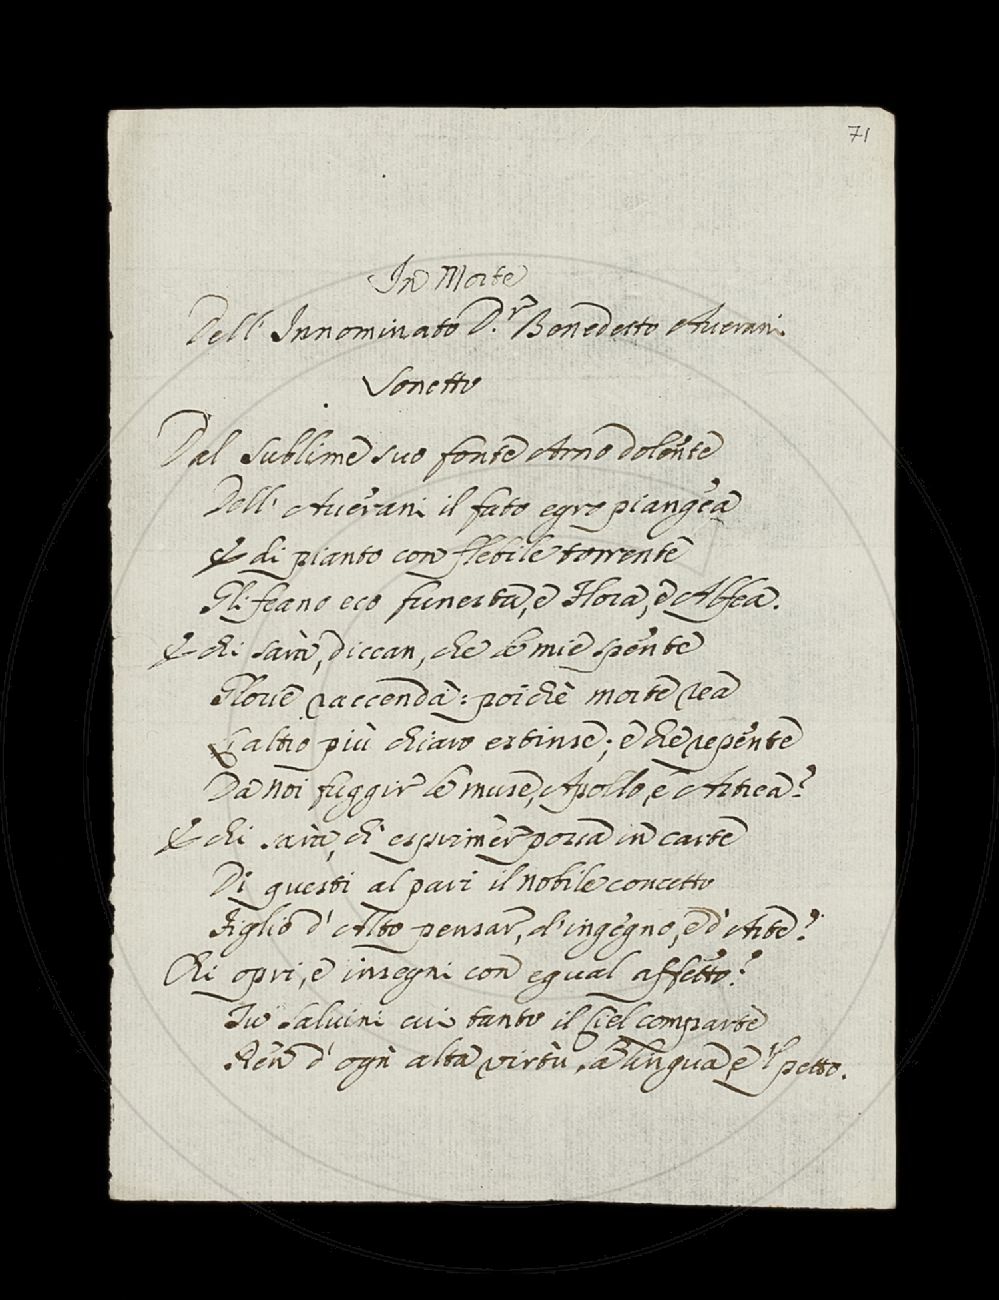 71
In Morte
Dell' Innominato D.r Benedetto Averani
Sonetto
Dal sublime suo fonte Arno dolente
Dell' Averani il fato egro piangea
E di pianto con flebile torrente
Gli feano eco funesta, e Flora, e Alfea.
E chi sarà, diccan, che le mie spente
Glorie raccenda: poichè morte rea
L'altro più chiaro estinse; e che repente
Da noi fuggir le muse, Apollo, e Astrea?
E chi sarà, ch' esprimer possa in carte
Di questi al pari il nobile concetto
Figlio d' Alto pensar, d' ingegno, e d' Arte?
Chi opri, e insegni con egual affetto?
Tu Salvini cui tanto il Ciel comparte
Ren d' ogni alta virtù, a lingua, e 'l petto.